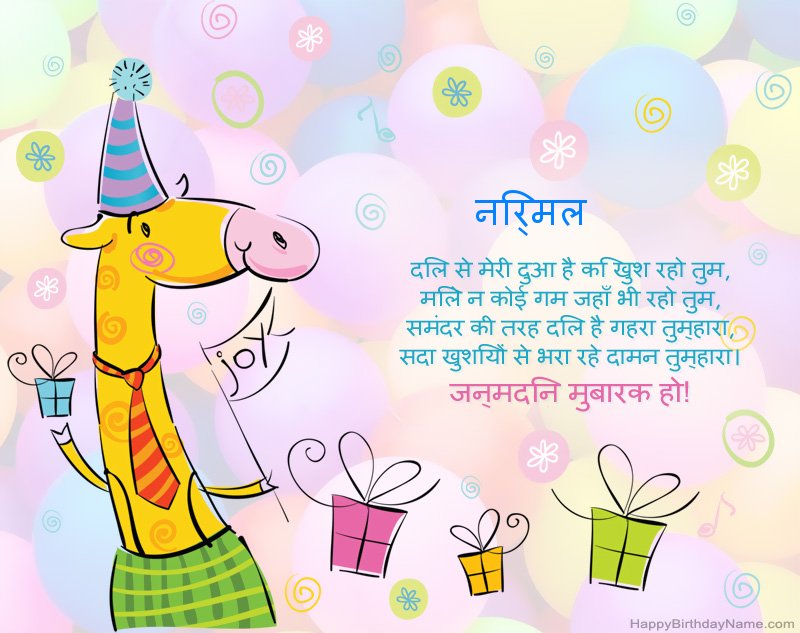 निर्मल
दिल से मेरी दुआ है कि खुश रहो तुम,
मिले न कोई गम जहाँ भी रहो तुम,
समंदर की तरह दिल है गहरा तुम्हारा,
सदा खुशियों से भरा रहे दामन तुम्हारा।
जन्मदिन मुबारक हो!
joy
HappyBirthdayName.com